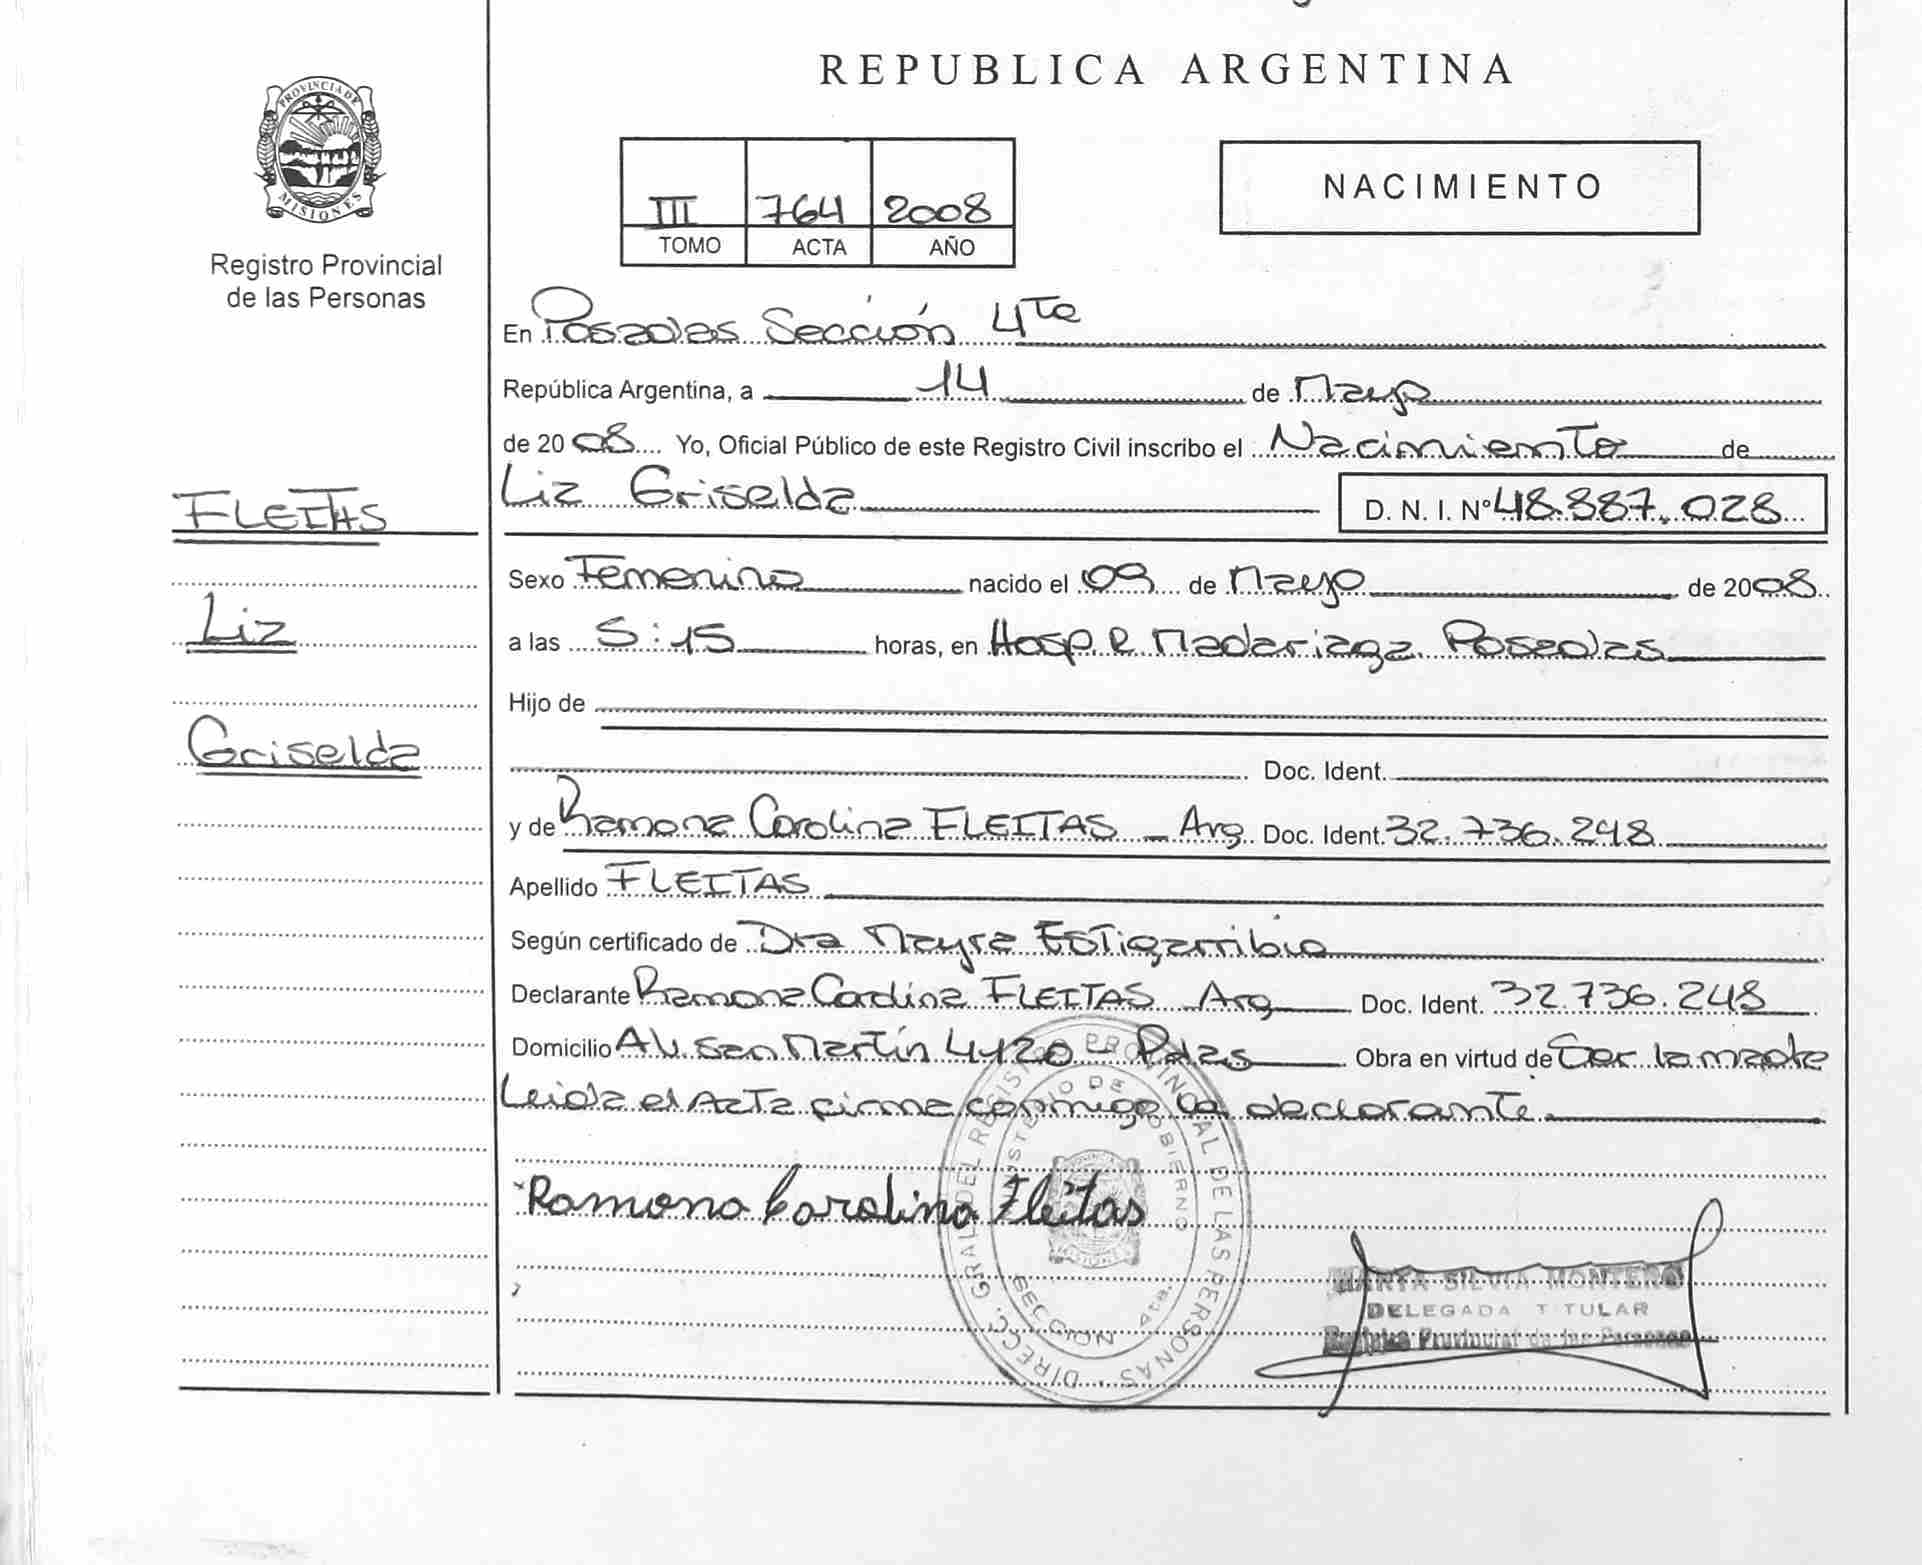 REPUBLICA ARGENTINA
PROVINCIA DE MISIONES
Registro Provincial
de las Personas
III 764 2008
TOMO ACTA AÑO
NACIMIENTO
En Posadas Sección 4ta
República Argentina, a 14 de Mayo
de 2008 Yo, Oficial Público de este Registro Civil inscribo el Nacimiento de
Liz Griselda D. N. I. Nº 48.887.028
FLEITAS
Liz
Griselda
Sexo Femenino nacido el 09 de Mayo de 2008
a las 5:15 horas, en Hosp R Madariaga Posadas
Hijo de
Doc. Ident.
y de Ramona Carolina FLEITAS - Arg. Doc. Ident. 32.736.248
Apellido FLEITAS
Según certificado de Dra Mayra Estigarribia
Declarante Ramona Carolina FLEITAS Arg Doc. Ident. 32.736.248
Domicilio AV. San Martín 4420 - Pdas Obra en virtud de Ser la madre
Leida el Acta firma conmigo la declarante
x Ramona Carolina Fleitas
DIRECC. GRAL. DEL REGISTRO PROVINCIAL DE LAS PERSONAS
MINISTERIO DE GOBIERNO
PROVINCIA
MISIONES
SECCION 4ta.
MARTA SILVIA MONTERO
DELEGADA TITULAR
Registro Provincial de las Personas